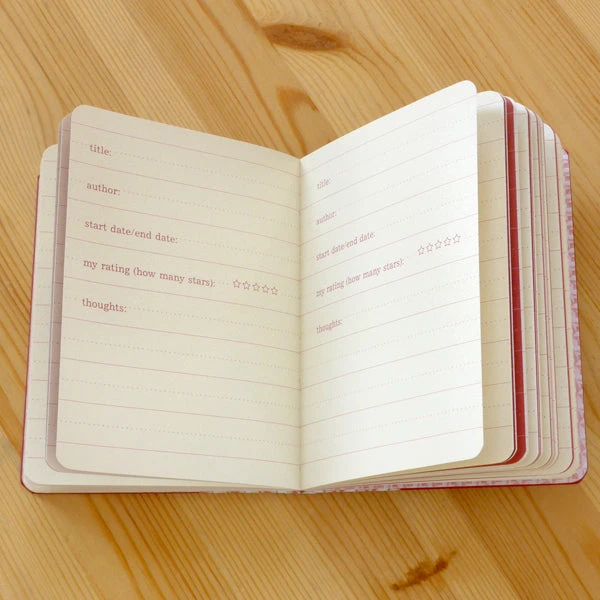 title:
author:
start date/end date:
my rating (how many stars): ☆☆☆☆☆
thoughts:
title:
author:
start date/end date:
my rating (how many stars): ☆☆☆☆☆
thoughts: